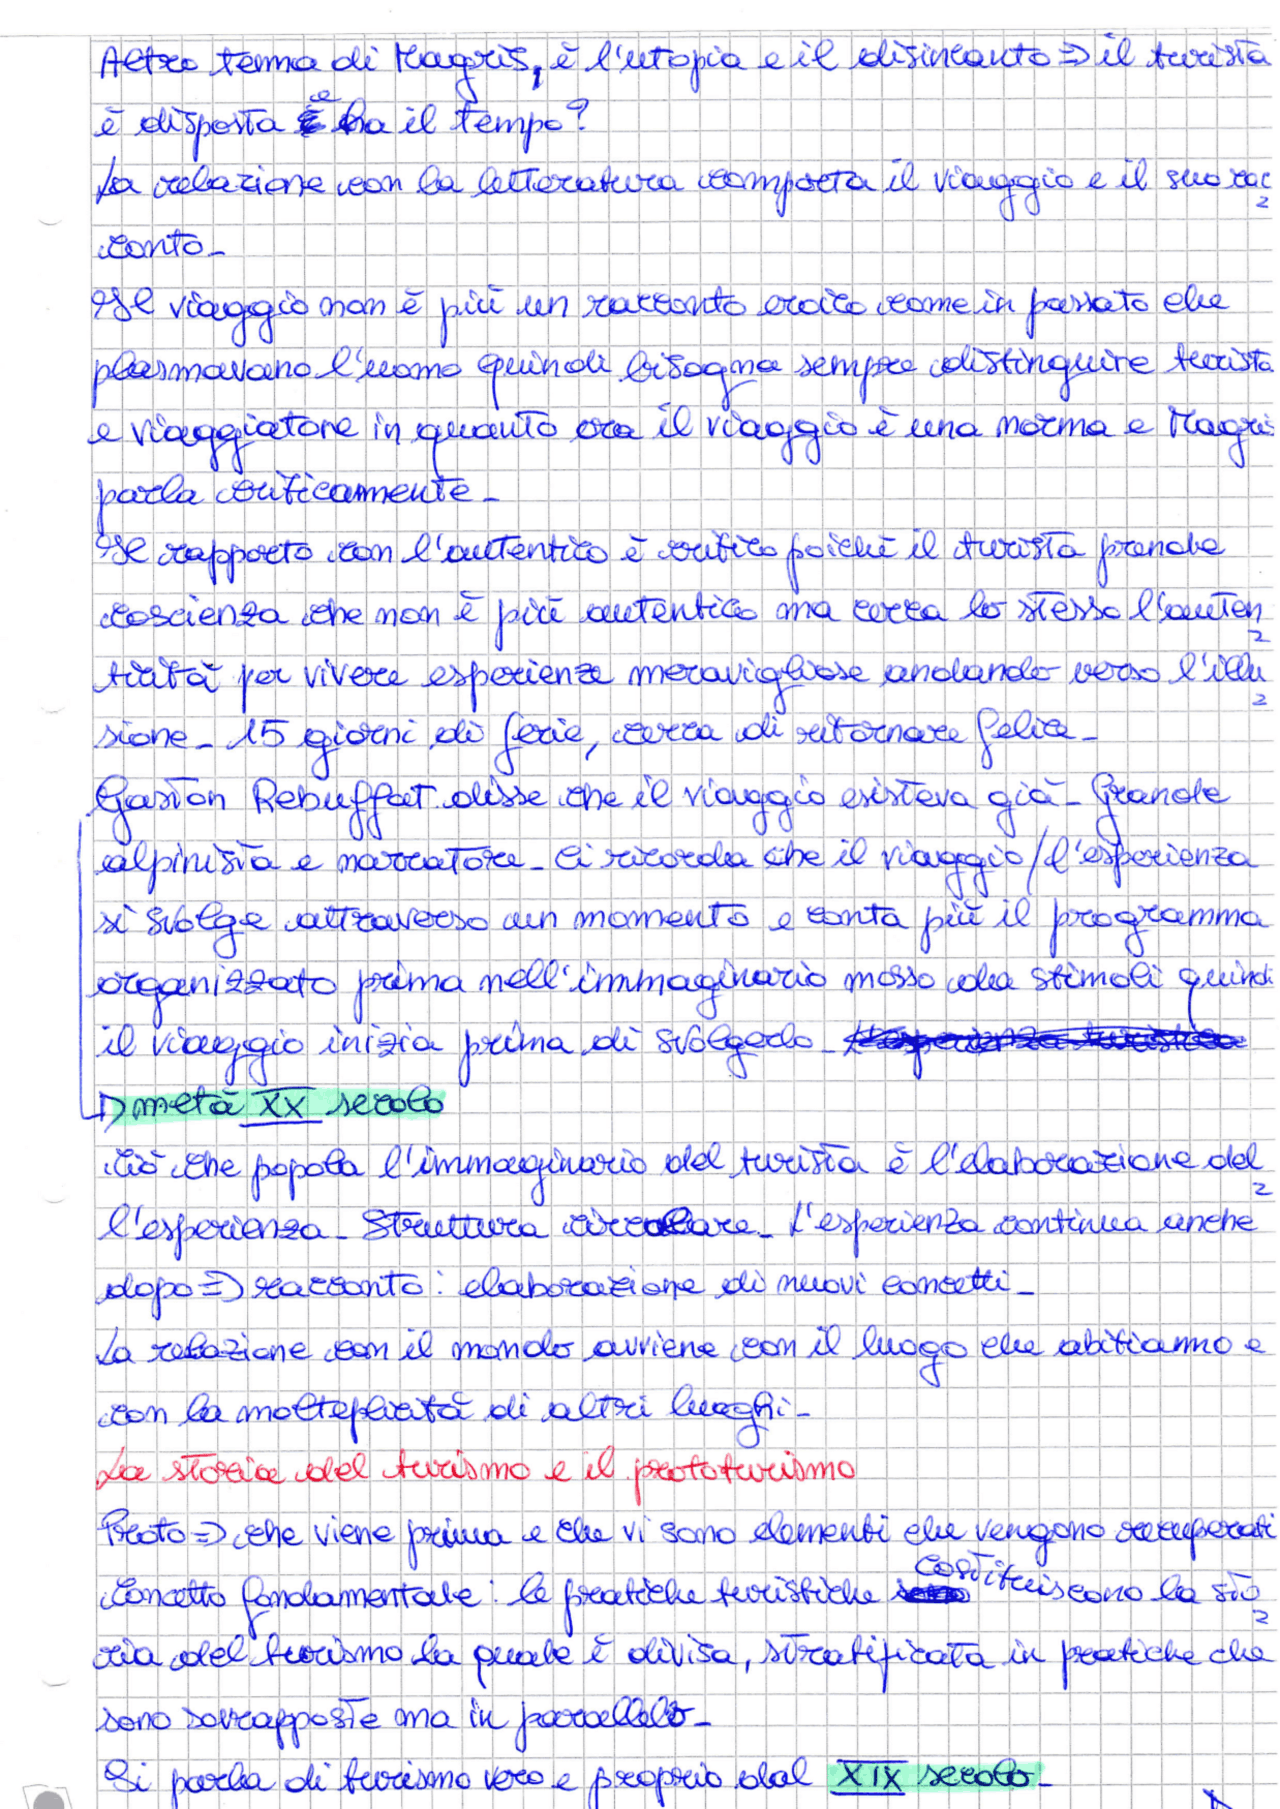 Altro tema di Magris, è l'utopia e il disincanto => il turista
è disposta e ha il tempo?
La relazione con la letteratura comporta il viaggio e il suo rac=
conto_
Il viaggio non è più un racconto eroico come in passato che
plasmavano l'uomo quindi bisogna sempre distinguire turista
e viaggiatore in quanto ora il viaggio è una norma e Magris
parla criticamente_
Il rapporto con l'autentico è critico poiché il turista prende
coscienza che non è più autentico ma cerca lo stesso l'auten=
ticità per vivere esperienze meravigliose andando verso l'illu=
sione_ 15 giorni di ferie, cerca di ritornare felice_
Gaston Rebuffat disse che il viaggio esisteva già_ Grande
alpinista e narratore_ Ci ricorda che il viaggio/l'esperienza
si svolge attraverso un momento e conta più il programma
organizzato prima nell'immaginario mosso da stimoli quindi
il viaggio inizia prima di svolgerlo_ l'esperienza turistica
metà XX secolo
Ciò che popola l'immaginario del turista è l'elaborazione del=
l'esperienza_ Struttura circolare_ L'esperienza continua anche
dopo => racconto: elaborazione di nuovi concetti_
La relazione con il mondo avviene con il luogo che abitiamo e
con la molteplicità di altri luoghi_
La storia del turismo e il prototurismo
Proto => che viene prima e che vi sono elementi che vengono recuperati
Concetto fondamentale: le pratiche turistiche costituiscono la sto=
ria del turismo la quale è divisa, stratificata in pratiche che
sono sovrapposte ma in parallelo_
Si parla di turismo vero e proprio dal XIX secolo_